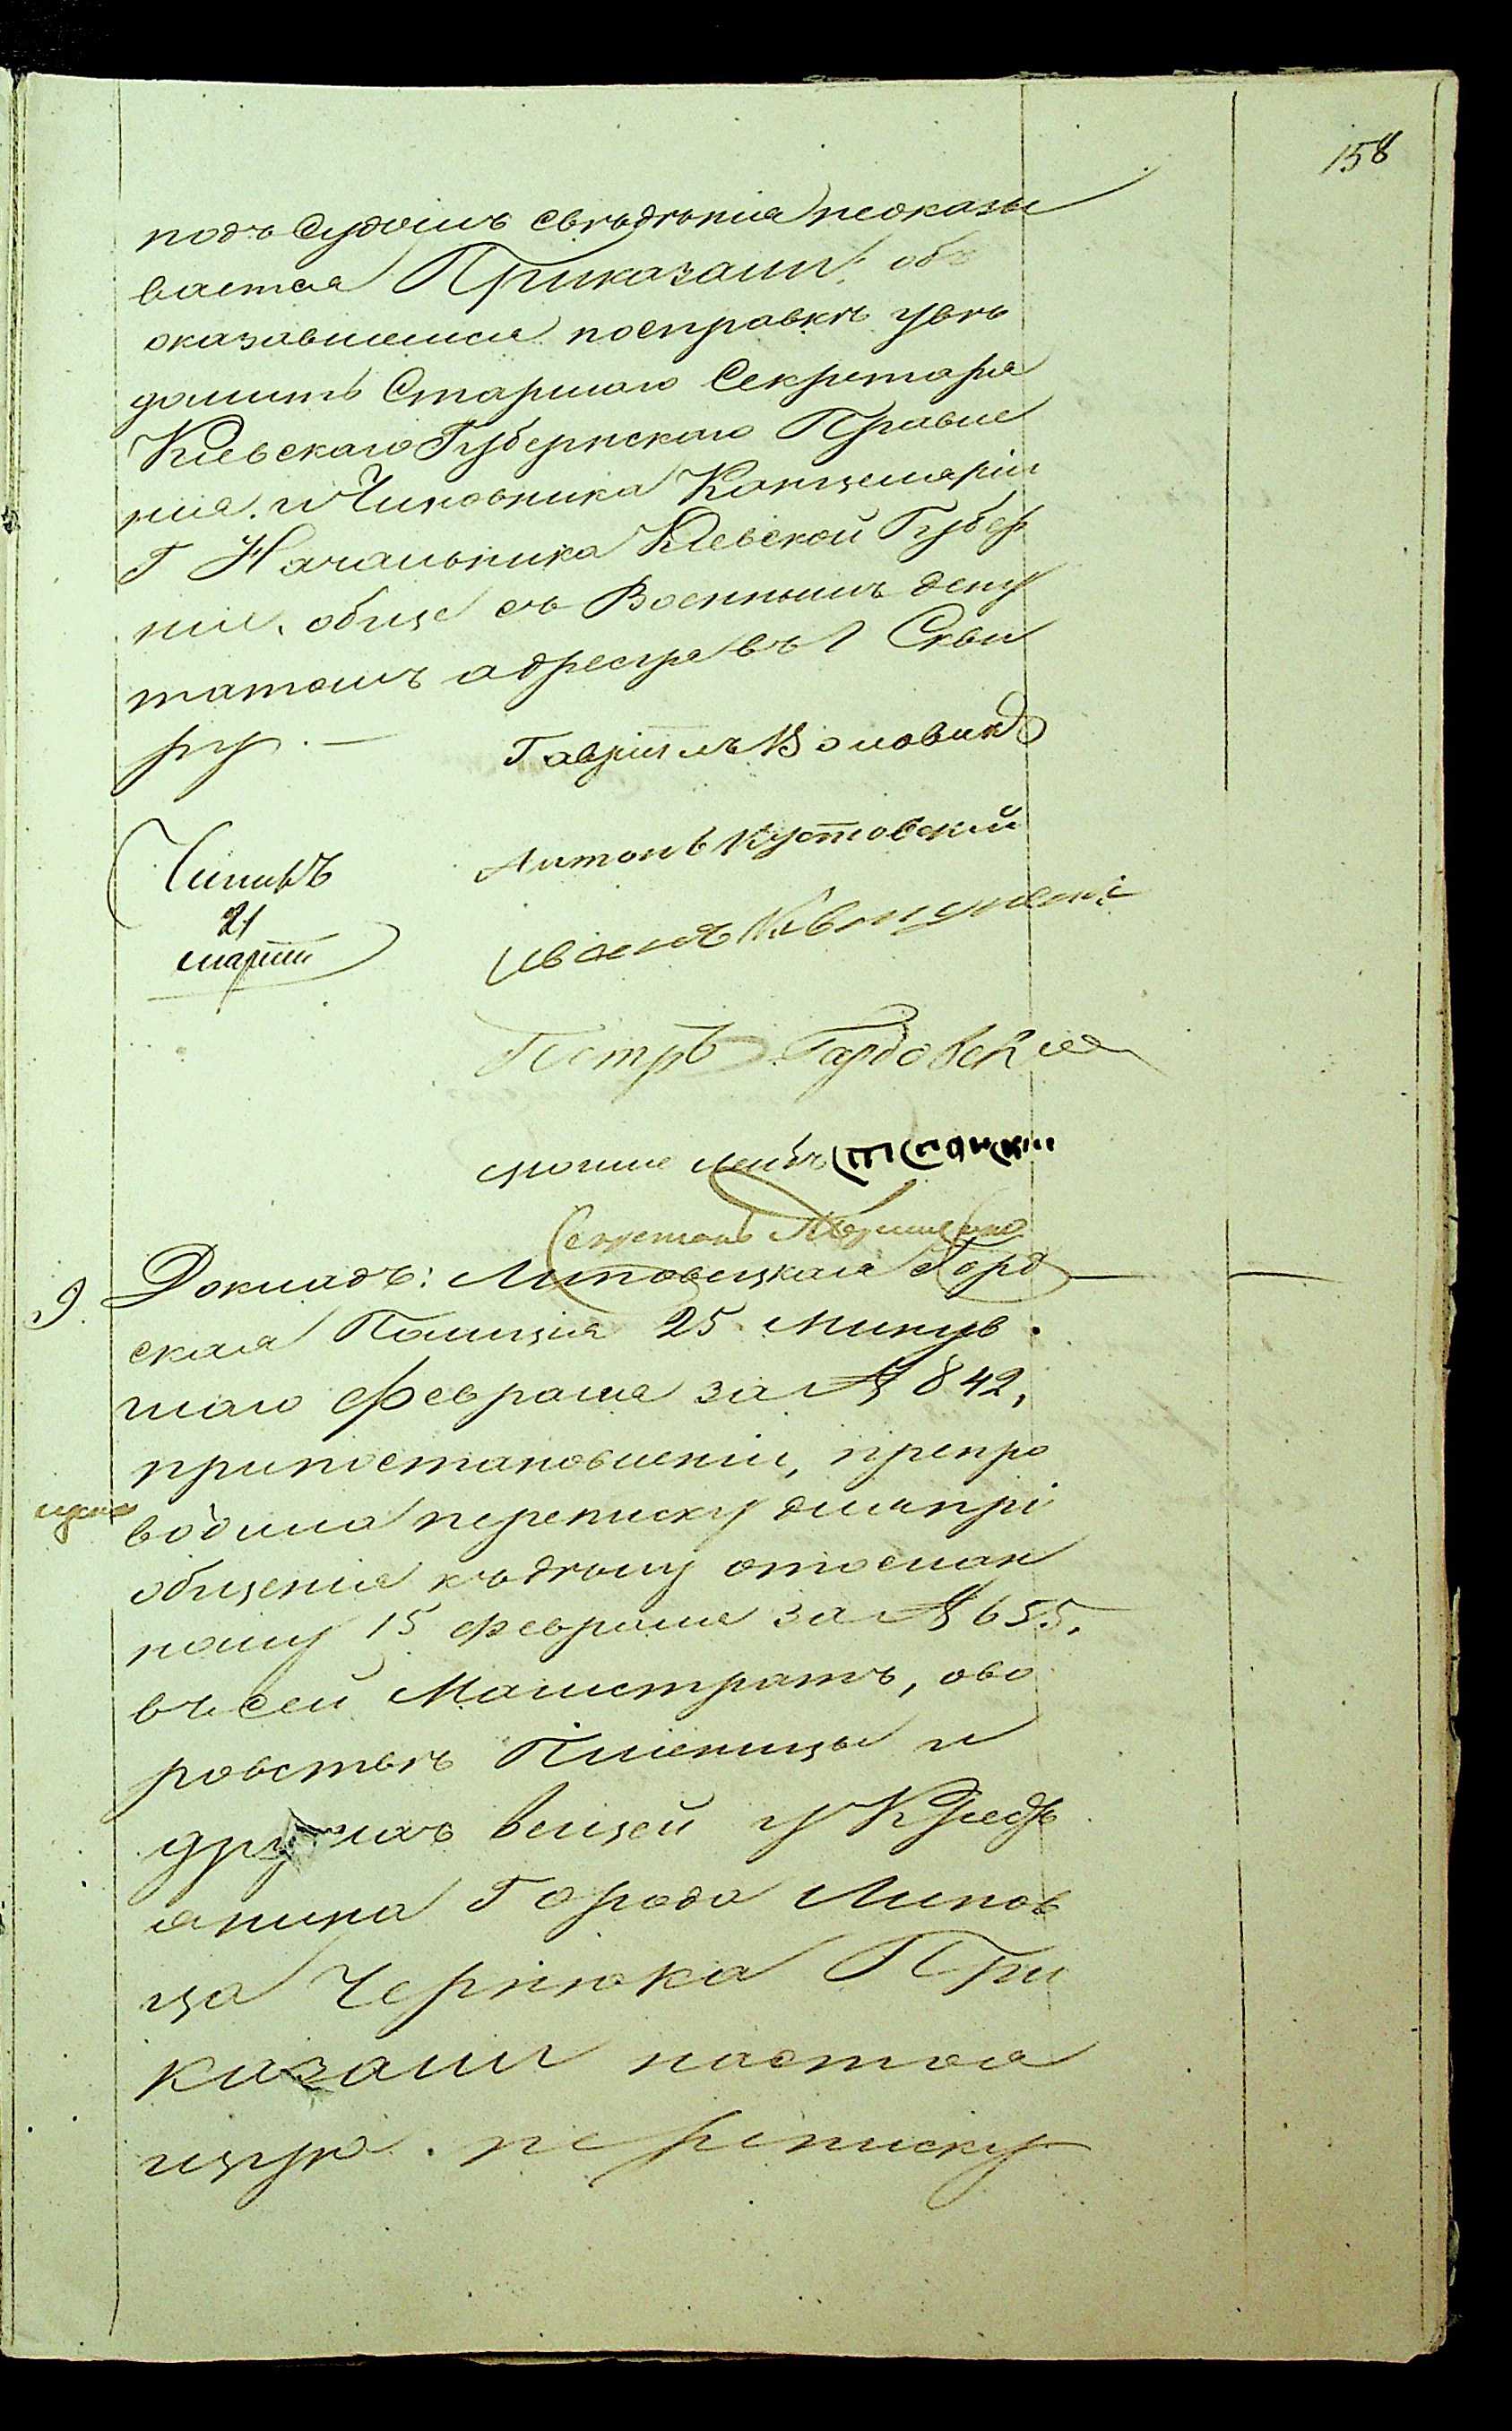 158
подъ судомъ свѣдѣнія неоказы
вается Приказали: объ
оказавшемся посправкѣ увѣ
домить Старшаго Секретаря
Кіевскаго Губернскаго Правле
нія. и Чиновника Канцеляріи
Г Начальника Кіевской Губер
ніи, обще съ Военнымъ депу
татомъ адресуя въ Г Скви
ру. —
Гавріилъ Воловикъ
Антонъ Кустовскій
Чинилъ
21
марта
Иванъ
Петръ
мошко лейбъ
Секретарь
9. Докладъ: Липовецкая Город
ская Полиція 25 минув.
шаго Февраля за № 842,
припостановленіи, препро
водила переписку дляпрі
общенія къдѣлу отослан
ному 15 Февраля за № 655.
въ сей Магистратъ, ово
ровствѣ Пшеницы и
другихъ вещей у Крест
янина Города Липов
ца Чернюка При
казали настоя
щую переписку